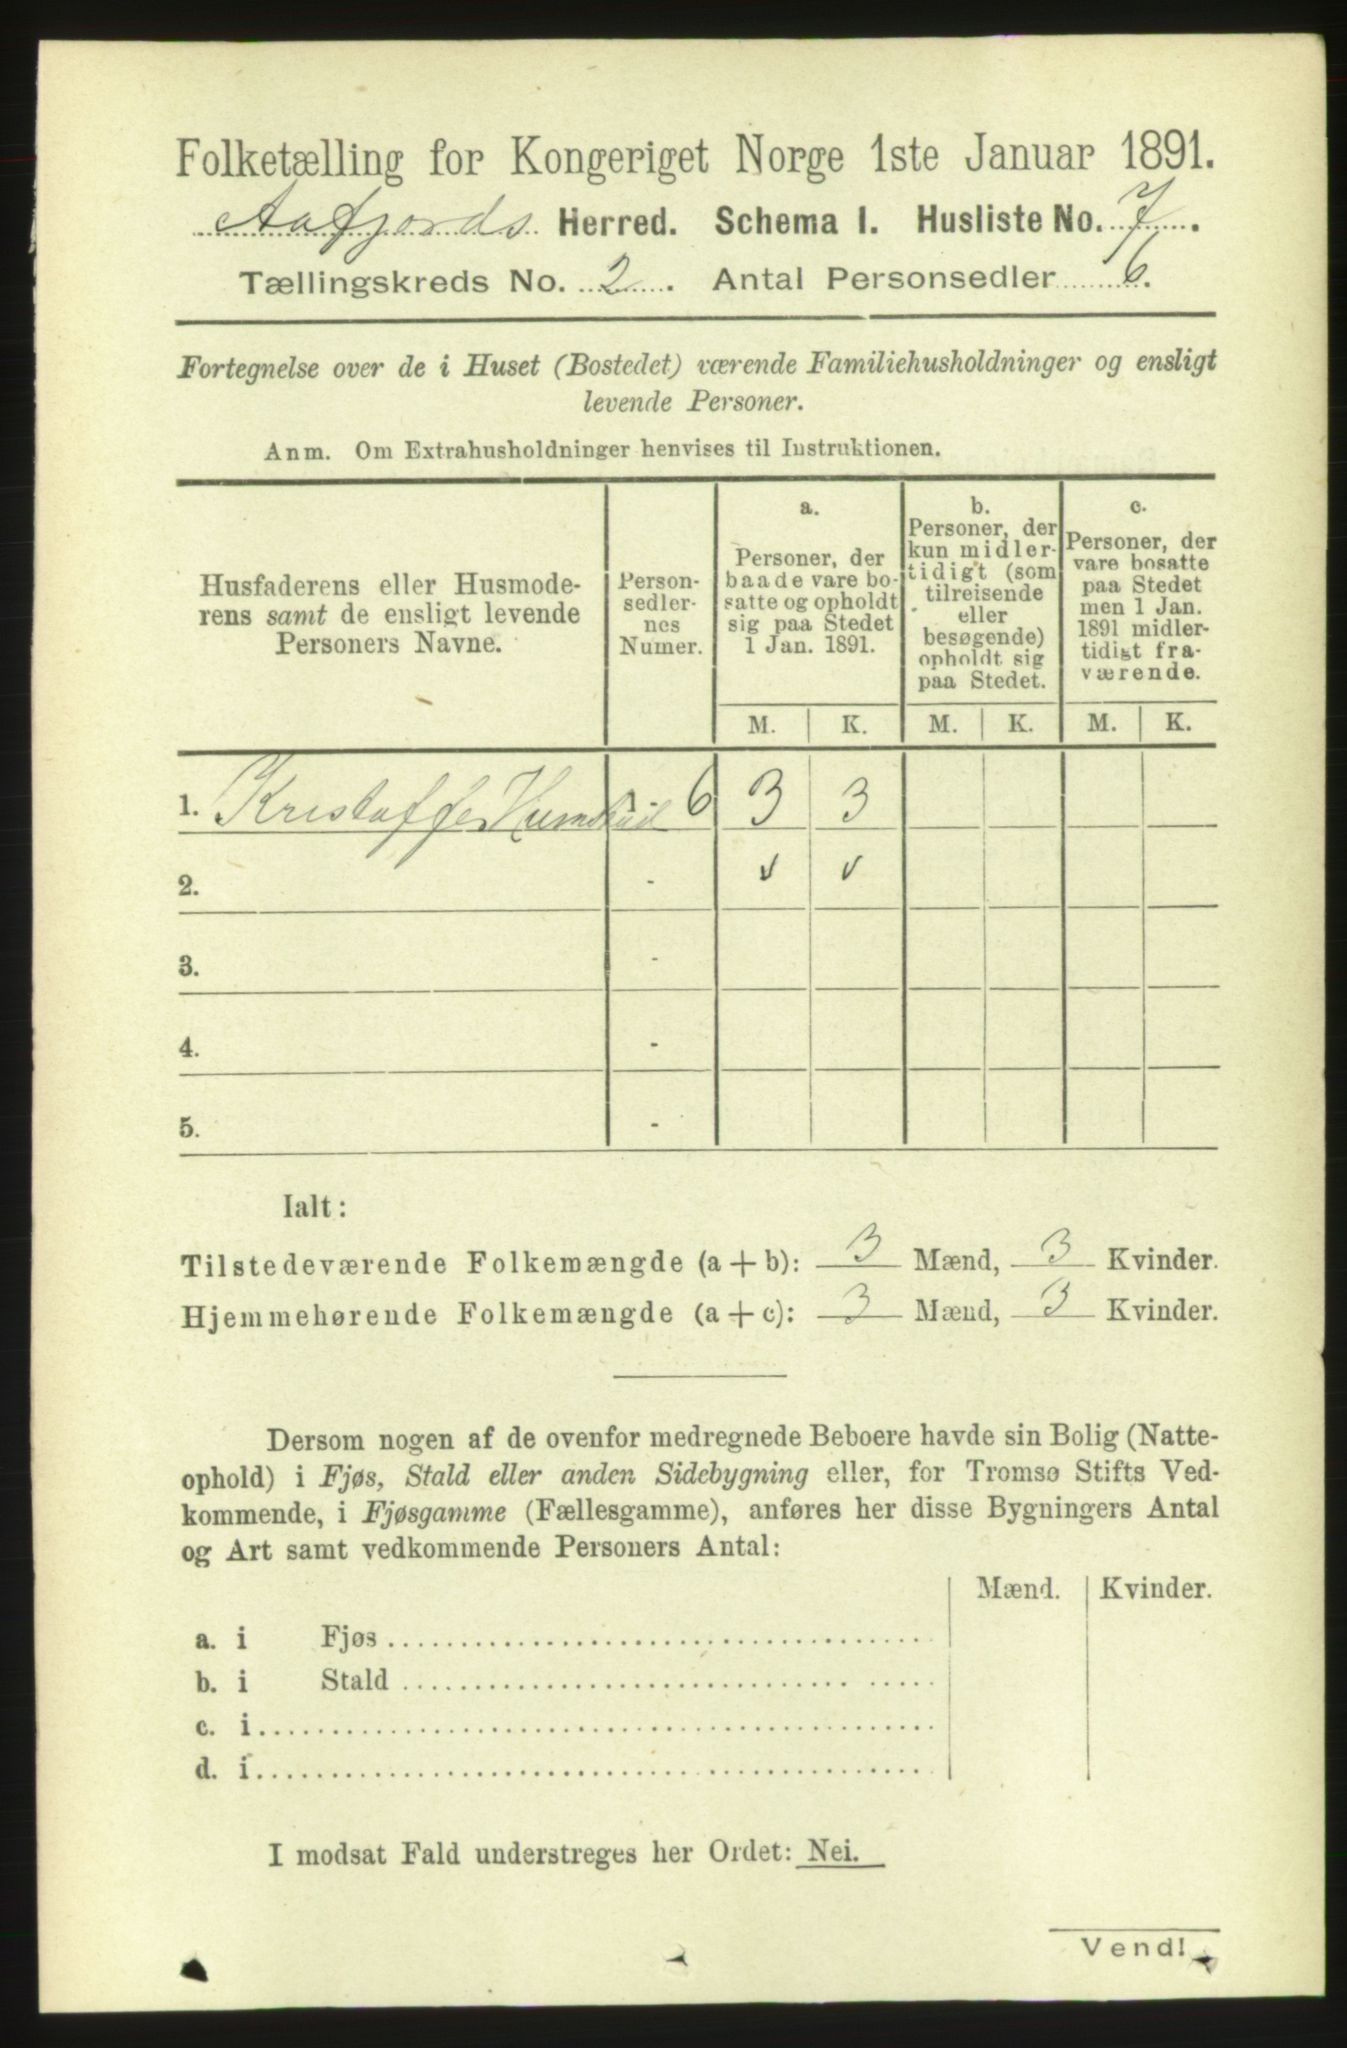 Folketælling for Kongeriget Norge 1ste Januar 1891.
Aafjords Herred. Schema I. Husliste No. 7.
Tællingskreds No. 2. Antal Personsedler 6.
Fortegnelse over de i Huset (Bostedet) værende Familiehusholdninger og ensligt
levende Personer.
Anm. Om Extrahusholdninger henvises til Instruktionen.
Husfaderens eller Husmode-
rens samt de ensligt levende
Personers Navne.
Person-
sedler-
nes
Numer.
a.
Personer, der
baade vare bo-
satte og opholdt
sig paa Stedet
1 Jan. 1891.
b.
Personer, der
kun midler-
tidigt (som
tilreisende
eller
besøgende)
opholdt sig
paa Stedet.
c.
Personer, der
vare bosatte
paa Stedet
men 1 Jan.
1891 midler-
tidigt fra-
værende.
M. K. M. K. M. K.
1. Kristoffer 1 - 6 3 3
2. - v v
3. -
4. -
5. -
Ialt:
Tilstedeværende Folkemængde (a + b): 3 Mænd, 3 Kvinder.
Hjemmehørende Folkemængde (a + c): 3 Mænd, 3 Kvinder.
Dersom nogen af de ovenfor medregnede Beboere havde sin Bolig (Natte-
ophold) i Fjøs, Stald eller anden Sidebygning eller, for Tromsø Stifts Ved-
kommende, i Fjøsgamme (Fællesgamme), anføres her disse Bygningers Antal
og Art samt vedkommende Personers Antal:
Mænd. Kvinder.
a. i Fjøs
b. i Stald
c. i
d. i
I modsat Fald understreges her Ordet: Nei.
Vend!